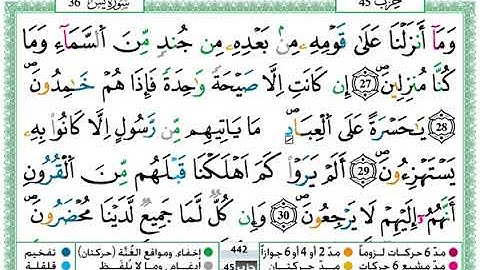 حزب 45 سُورَةُ يسٓ 36
وَمَآ أَنزَلْنَا عَلَىٰ قَوْمِهِۦ مِنۢ بَعْدِهِۦ مِن جُندٖ مِّنَ ٱلسَّمَآءِ وَمَا
كُنَّا مُنزِلِينَ 27 إِن كَانَتِ اِلَّا صَيْحَةٗ وَٰحِدَةٗ فَإِذَا هُمْ خَٰمِدُونَ
28 يَٰحَسْرَةً عَلَى ٱلْعِبَادِ مَا يَاتِيهِم مِّن رَّسُولٍ اِلَّا كَانُواْ بِهِۦ
يَسْتَهْزِءُونَ 29 أَلَمْ يَرَوْاْ كَمَ اَهْلَكْنَا قَبْلَهُم مِّنَ ٱلْقُرُونِ
أَنَّهُمُۥٓ إِلَيْهِمْ لَا يَرْجِعُونَ 30 وَإِن كُلّٞ لَّمَا جَمِيعٞ لَّدَيْنَا مُحْضَرُونَ
مدّ 6 حركات لزوماً مدّ 2 أو 4 أو 6 جوازاً 442 إخفاء، ومواقع الغُنَّة (حركتان) تفخيم
مدّ مشبع 6 حركات مدّ حركتان 45 إدغام، وما لا يُلفَظ قلقلة